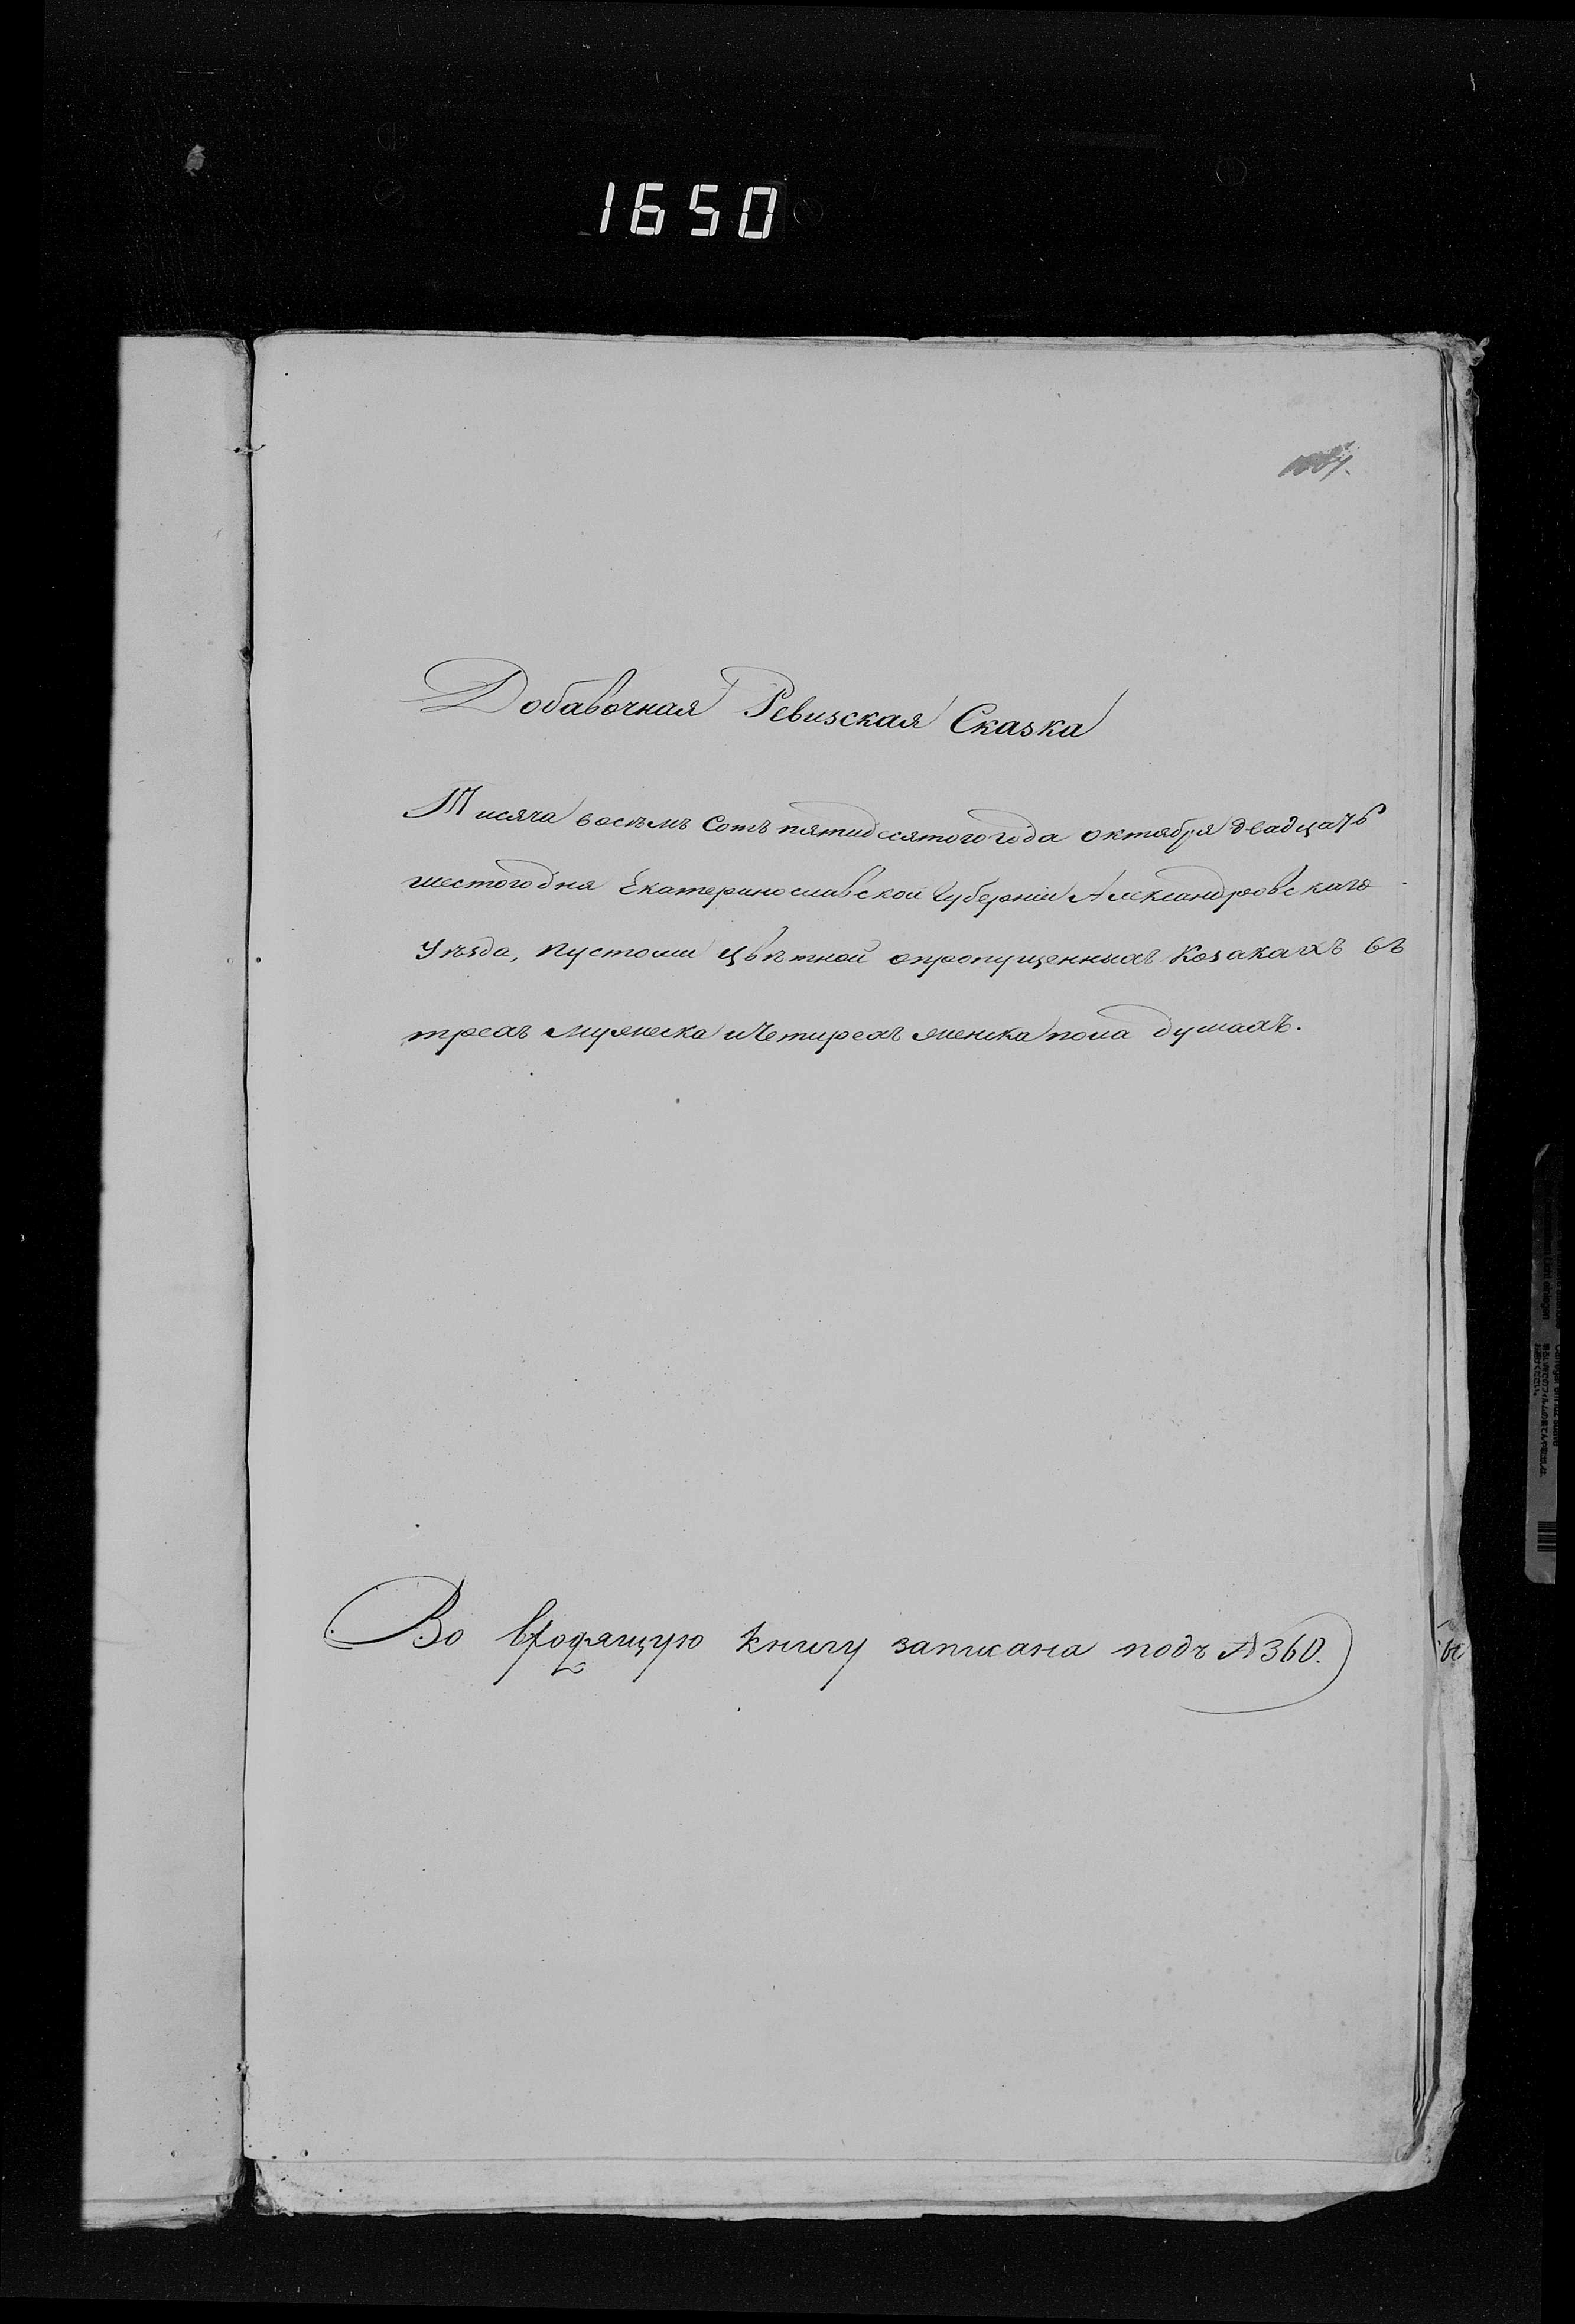 1650
Добавочная Ревизская Сказка
Тисяча восемь сотъ пятидесятого года октября двадцать
шестого дня Екатеринославской Губернiи Александровскаго
Уѣзда, пустоши Цвѣтной опропущенныхъ Козакахъ въ
трехъ мужеска и Четирехъ женска пола душахъ.
Во входящую книгу записана подъ № 360.